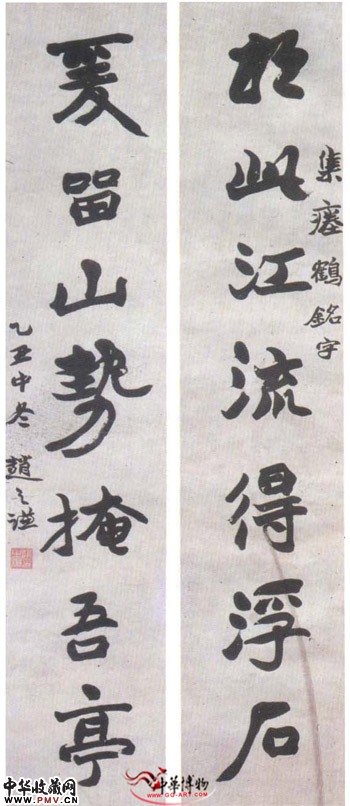 相此江流得浮石
集瘞鶴銘字
爰留山勢掩吾亭
乙丑中冬 趙之謙
中华收藏网
WWW.PMV.CN
中華博物
WWW.GG-ART.COM